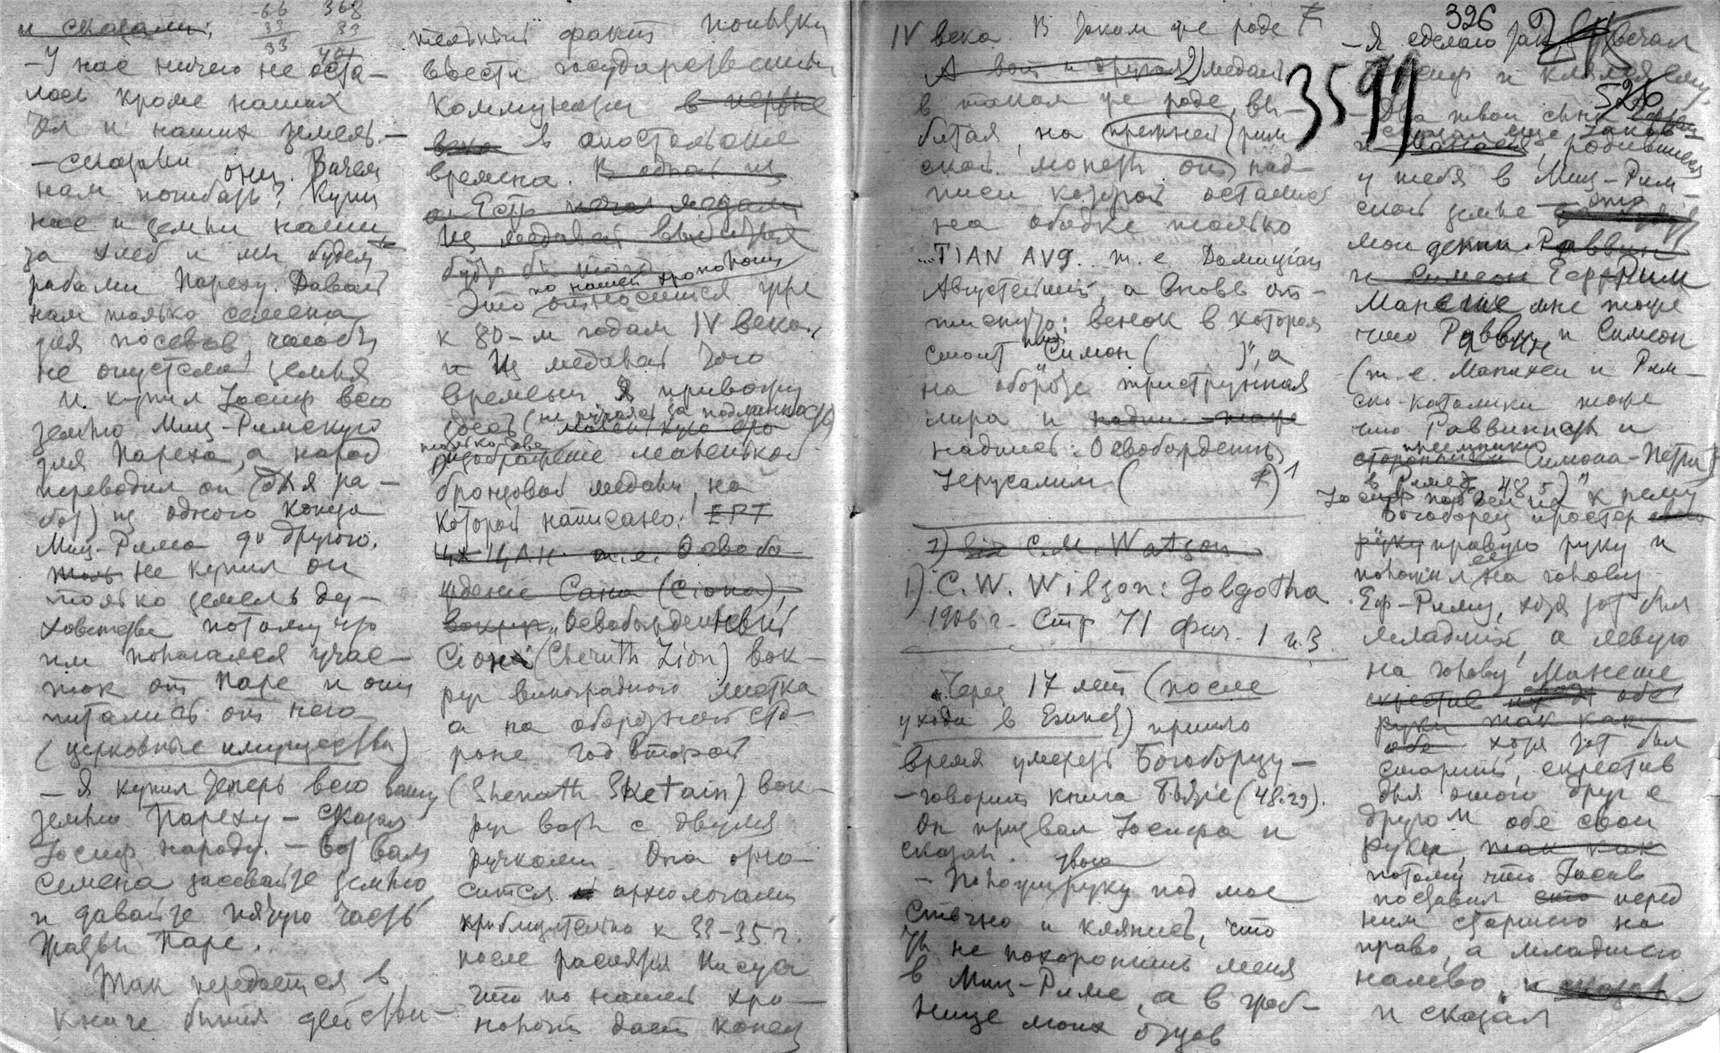 и сказали:
- У нас ничего не оста-
лось кроме наших
тел и наших земель. -
- сказали они. Зачем
нам погибать? Купи
нас и земли наши
за хлеб и мы будем
рабами Пареху. Давай
нам только семена
для посевов, чтобы
не опустела земля
И купил Иосиф всю
землю Миц-Римскую
для Пареха, а народ
переводил он (для ра-
бот) из одного конца
Миц-Рима до другого.
не купил он
только земель ду-
ховенства потому что
им полагался учас-
ток от Паре и они
питались от него
(церковные имущества)
- Я купил теперь всю вашу
землю Пареху - сказал
Иосиф народу. - вот вам
семена засевайте землю
и давайте пятую часть
жатвы Паре.
Так передается в
Книге бытия действи-
тельный факт попытки
ввести государственный
Коммунизм в первые
века в апостольские
времена. В одной из
Есть
Из медалей
по нашей хронологии
Это относится уже
к 80-м годам IV века.
Из медалей того
времени я привожу
здесь (не ручаясь за подлинность)
только две
изображение маленькой
бронзовой медали, на
которой написано:
т.е. Освобо
ждение Сана (Сиона),
вокруг „Освобожденный
Сион" (Cheruth Zion) вок-
руг виноградного листка
а на оборотной сто-
роне год второй
(Shenath Shetain) вок-
руг вазы с двумя
ручками. Она отно-
сится археологами
приблизительно к 33-35 г.
после распятия Иисуса
что по нашей хро-
нологии дает конец
IV века. В таком же роде
А вот и другая 2) медаль
в таком же роде, вы-
битая, на прежней рим-
ской монете от над-
писи которой остались
на ободке только
...TIAN AVG. т.е. Домициан
Августейший, а вновь от-
тиснуто: венок в котором
стоит „Симон ( )", а
на обороте трехструнная
лира и
надпись: Освобождение
Иерусалима ( )
2) C.M. Watson
1) C.W. Wilson: Golgotha
1906 г. Стр 71 фиг. 1 и 3
„Через 17 лет (после
ухода в Египет) пришло
время умереть Богоборцу -
- говорит книга Бытие (48.29).
Он призвал Иосифа и
сказал.
твою
- Положи руку под мое
стегно и клянись, что
ты не похоронишь меня
в Миц-Риме, а в гроб-
нице моих отцов
326
3599
526
- Я сделаю так отвечал
Иосиф и клялся ему.
- Два твои сына
родившиеся
у тебя в Миц-Рим-
ской земле - это
мои дети. Раввин
и Симеон Еф-Рим
Манеше мне тоже
что Раввин и Симеон
(т.е. Манихеи и Рим-
ско-католики тоже
что Раввинисты и
сторонники Симона-Петра
в Риме, 48 5)"
Иосиф подвел их к нему
Богоборец простер
руку правую руку и
положил ее на голову
Еф-Риму, хотя тот был
младший, а левую
на голову Манеше
скрестив обе
руки так как
хотя тот был
старший, скрестив
для этого друг с
другом обе свои
руки, так как
потому что Иосиф
поставил перед
ним старшего на
право, а младшего
налево, и сказал
и сказал